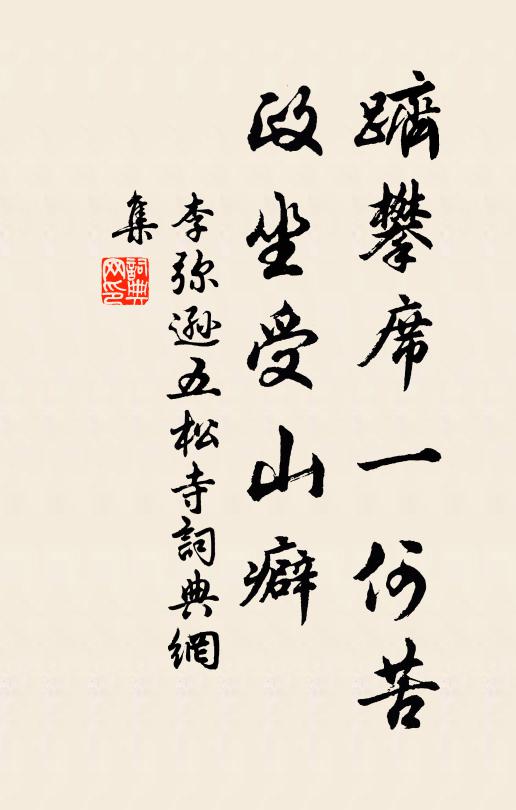 躋攀席一何苦
政坐受山癖
李弥遜五松寺詞典網
集
詞典
网印